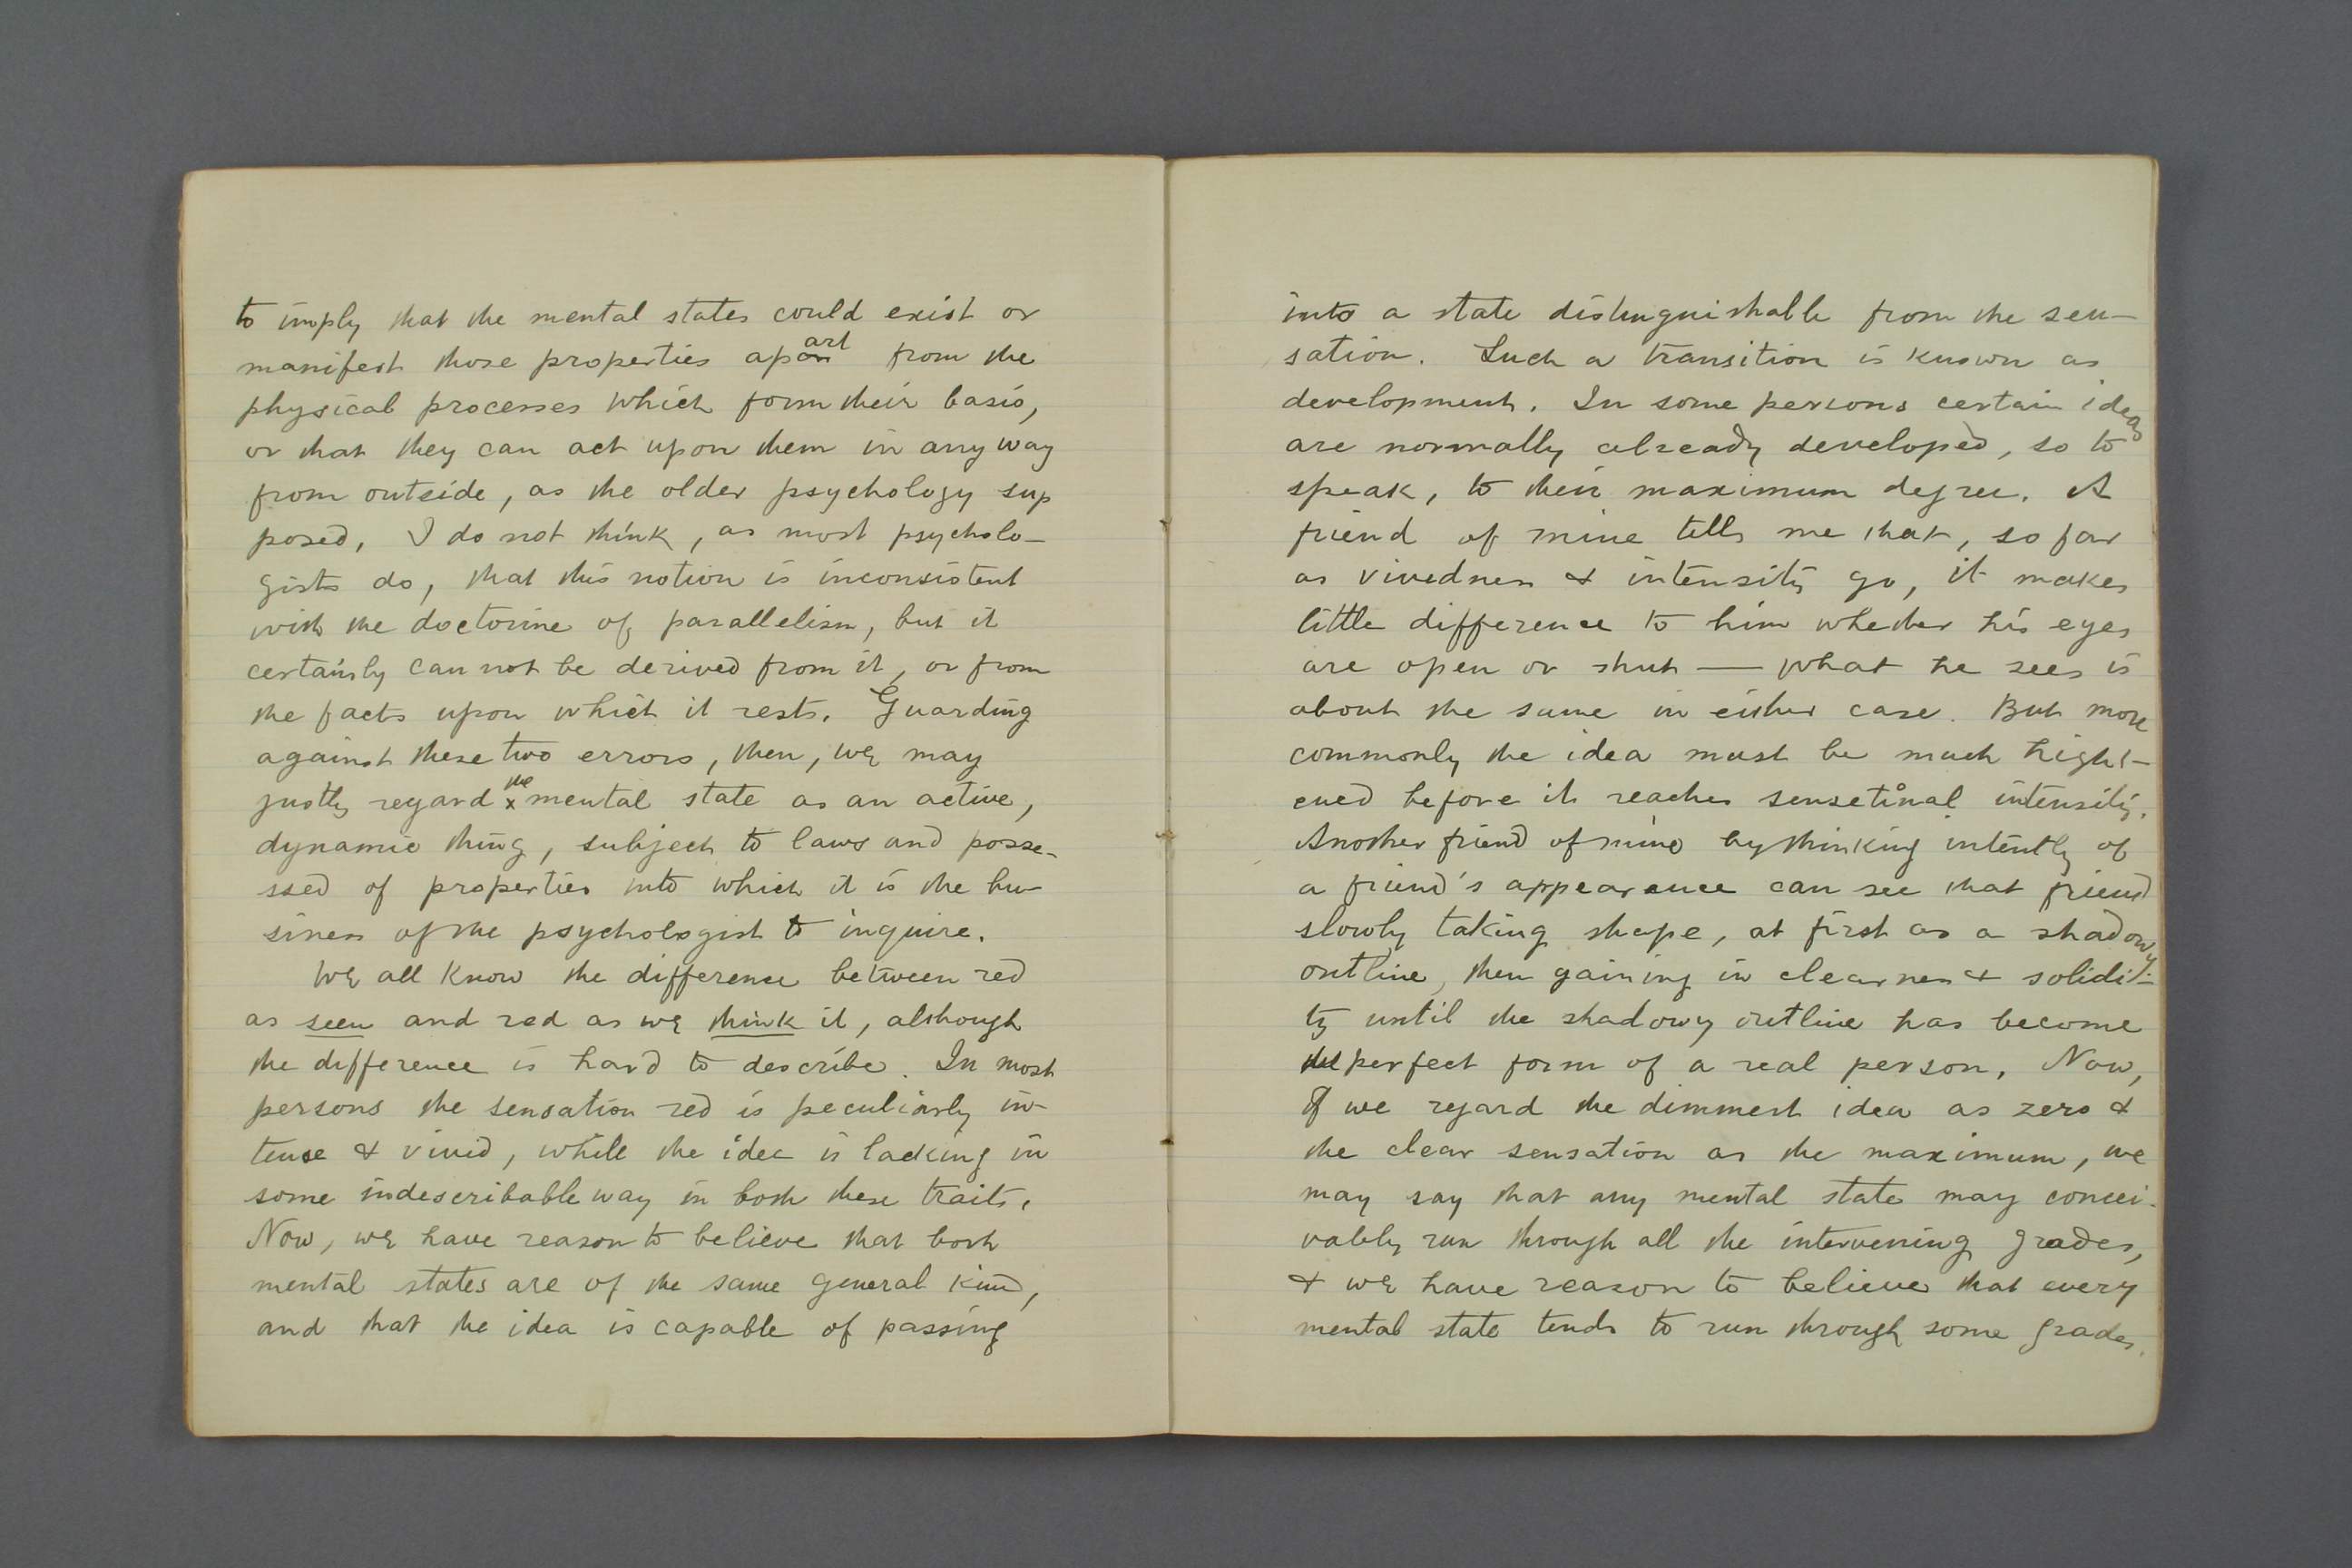 to imply that the mental states could exist or
manifest those properties apart from the
physical processes which form their basis,
or that they can act upon them in any way
from outside, as the older psychology sup
posed, I do not think, as most psycholo-
gists do, that this notion is inconsistent
with the doctorine of parallelism, but it
certainly can not be derived from it, or from
the facts upon which it rests. Guarding
against these two errors, then, we may
justly regard the mental state as an active,
dynamic thing, subject to laws and posse-
ssed of properties into which it is the bu-
siness of the psychologist to inquire.
We all know the difference between red
as seen and red as we think it, although
the difference is hard to describe. In most
persons the sensation red is peculiarly in-
tense & vivid, while the idea is lacking in
some indescribable way in both these traits.
Now, we have reason to believe that both
mental states are of the same general kind,
and that the idea is capable of passing
into a state distinguishable from the sen-
sation. Such a transition is known as
development. In some persons certain ideas
are normally already developed, so to
speak, to their maximum degree. A
friend of mine tells me that, so far
as vividness & intensity go, it makes
little difference to him whether his eyes
are open or shut — what he sees is
about the same in either case. But more
commonly the idea must be much hight-
ened before it reaches sensetinal intensity.
Another friend of mine by thinking intently of
a friend's appearance can see that friend
slowly taking shape, at first as a shadowy
outline, then gaining in clearness & solidi-
ty until the shadowy outline has become
the perfect form of a real person. Now,
If we regard the dimmest idea as zero &
the clear sensation as the maximum, we
may say that any mental state may concei-
vably run through all the intervening grades,
& we have reason to believe that every
mental state tends to run through some grades.